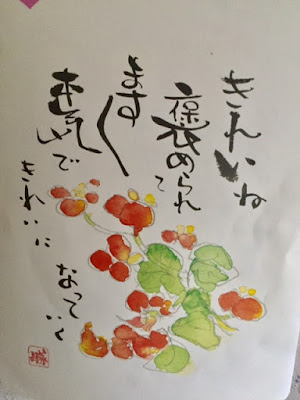 きれいね
褒められて
ます〱
本気で
きれいに
なっていく